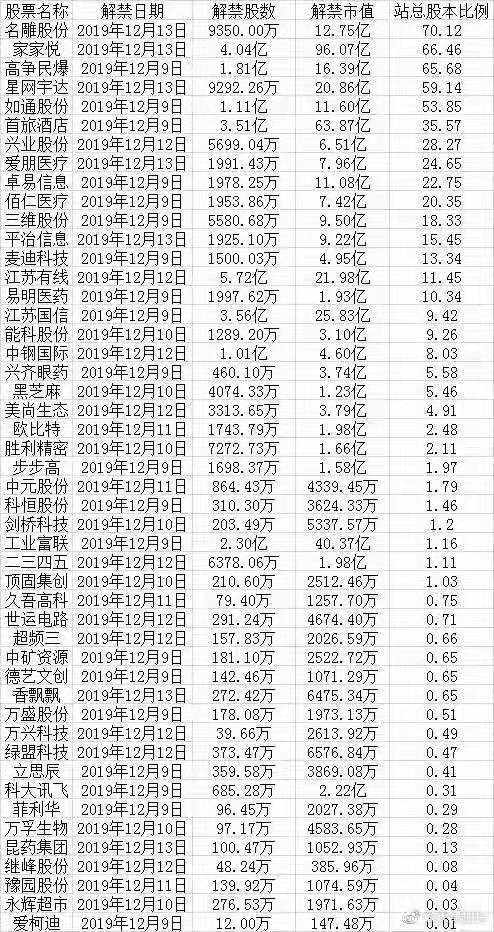 股票名称 解禁日期 解禁股数 解禁市值 站总股本比例
名雕股份 2019年12月13日 9350.00万 12.75亿 70.12
家家悦 2019年12月13日 4.04亿 96.07亿 66.46
高争民爆 2019年12月9日 1.81亿 16.39亿 65.68
星网宇达 2019年12月13日 9292.26万 20.86亿 59.14
如通股份 2019年12月9日 1.11亿 11.60亿 53.85
首旅酒店 2019年12月9日 3.51亿 63.87亿 35.57
兴业股份 2019年12月12日 5699.04万 6.51亿 28.27
爱朋医疗 2019年12月13日 1991.43万 7.96亿 24.65
卓易信息 2019年12月9日 1978.25万 11.08亿 22.75
佰仁医疗 2019年12月9日 1953.86万 7.42亿 20.35
三维股份 2019年12月9日 5580.68万 9.50亿 18.33
平治信息 2019年12月13日 1925.10万 9.22亿 15.45
麦迪科技 2019年12月9日 1500.03万 4.95亿 13.34
江苏有线 2019年12月12日 5.72亿 21.98亿 11.45
易明医药 2019年12月9日 1997.62万 1.93亿 10.34
江苏国信 2019年12月9日 3.56亿 25.83亿 9.42
能科股份 2019年12月10日 1289.20万 3.10亿 9.26
中钢国际 2019年12月9日 1.01亿 4.60亿 8.03
兴齐眼药 2019年12月9日 460.10万 3.74亿 5.58
黑芝麻 2019年12月10日 4074.33万 1.23亿 5.46
美尚生态 2019年12月9日 3313.65万 3.79亿 4.91
欧比特 2019年12月11日 1743.79万 1.98亿 2.48
胜利精密 2019年12月10日 7272.73万 1.66亿 2.11
步步高 2019年12月9日 1698.37万 1.58亿 1.97
中元股份 2019年12月11日 864.43万 4339.45万 1.79
科恒股份 2019年12月9日 310.30万 3624.33万 1.46
剑桥科技 2019年12月10日 203.49万 5337.57万 1.2
工业富联 2019年12月9日 2.30亿 40.37亿 1.16
二三四五 2019年12月12日 6378.06万 1.98亿 1.11
顶固集创 2019年12月10日 210.60万 2512.46万 1.03
久吾高科 2019年12月11日 79.40万 1257.70万 0.75
世运电路 2019年12月12日 291.24万 4674.40万 0.71
超频三 2019年12月12日 157.83万 2026.59万 0.66
中矿资源 2019年12月9日 181.10万 2522.72万 0.65
德艺文创 2019年12月9日 142.46万 1071.29万 0.65
香飘飘 2019年12月13日 272.42万 6475.34万 0.65
万盛股份 2019年12月9日 178.08万 1973.13万 0.51
万兴科技 2019年12月12日 39.66万 2613.92万 0.49
绿盟科技 2019年12月9日 373.47万 6576.84万 0.47
立思辰 2019年12月9日 359.58万 3869.08万 0.41
科大讯飞 2019年12月9日 685.28万 2.22亿 0.31
菲利华 2019年12月9日 96.45万 2027.38万 0.29
万孚生物 2019年12月10日 97.17万 4583.65万 0.28
昆药集团 2019年12月13日 100.47万 1052.93万 0.13
继峰股份 2019年12月12日 48.24万 385.96万 0.08
豫园股份 2019年12月11日 139.92万 1074.59万 0.04
永辉超市 2019年12月10日 276.53万 1971.63万 0.03
爱柯迪 2019年12月9日 12.00万 147.48万 0.01